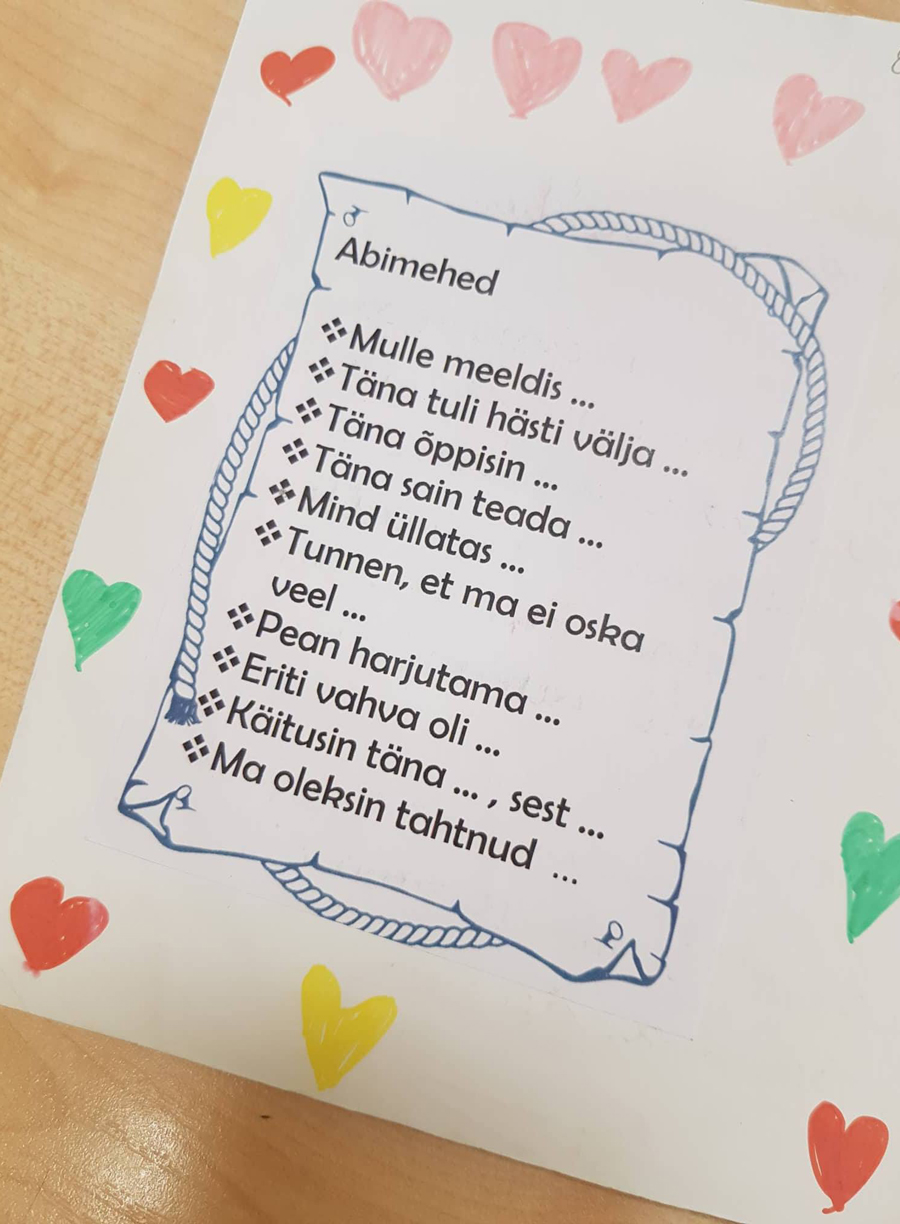 Abimehed
❖Mulle meeldis ...
❖Täna tuli hästi välja ...
❖Täna õppisin ...
❖Täna sain teada ...
❖Mind üllatas ...
❖Tunnen, et ma ei oska
veel ...
❖Pean harjutama ...
❖Eriti vahva oli ...
❖Käitusin täna ... , sest ...
❖Ma oleksin tahtnud ...